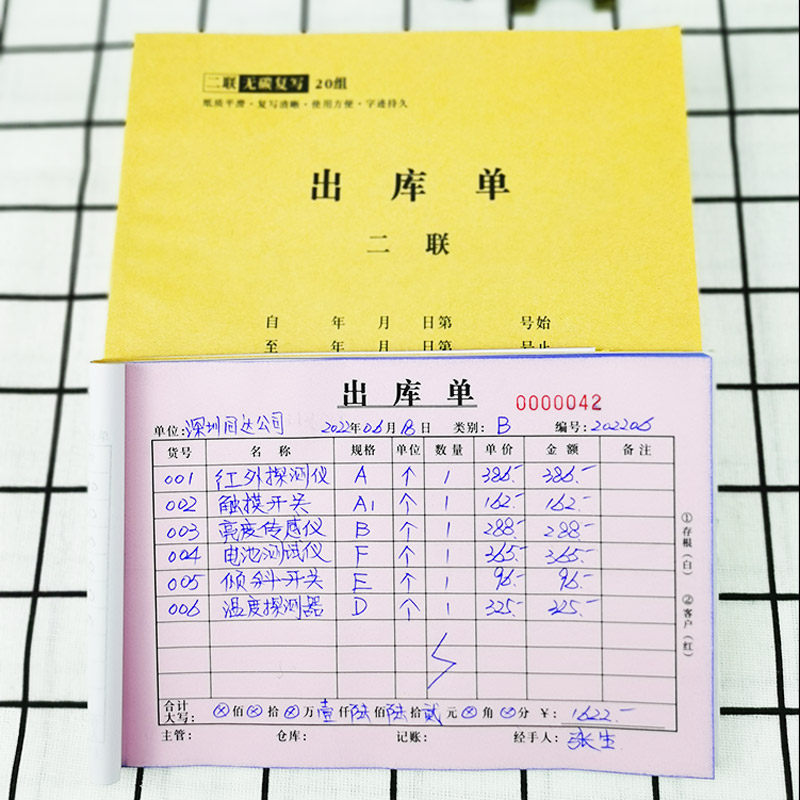 二联 无碳复写 20组
纸质平滑·复写清晰·使用方便·字迹持久
出库单
二联
自 年 月 日第 号始
至 年 月 日第 号止
出库单 0000042
单位:深圳同达公司 2022年06月18日 类别:B 编号:202206
货号 名称 规格 单位 数量 单价 金额 备注
001 红外探测仪 A 个 1 386.- 386.-
002 触摸开关 A1 个 1 162.- 162.-
003 亮度传感仪 B 个 1 288.- 288.-
004 电池测试仪 F 个 1 365.- 365.-
005 倾斜开关 E 个 1 96.- 96.-
006 温度探测器 D 个 1 325.- 325.-
①存根(白) ②客户(红)
合计
大写: ⊗佰⊗拾⊗万壹仟陆佰陆拾贰元⊗角⊗分 ¥:1622.-
主管: 仓库: 记账: 经手人:张生